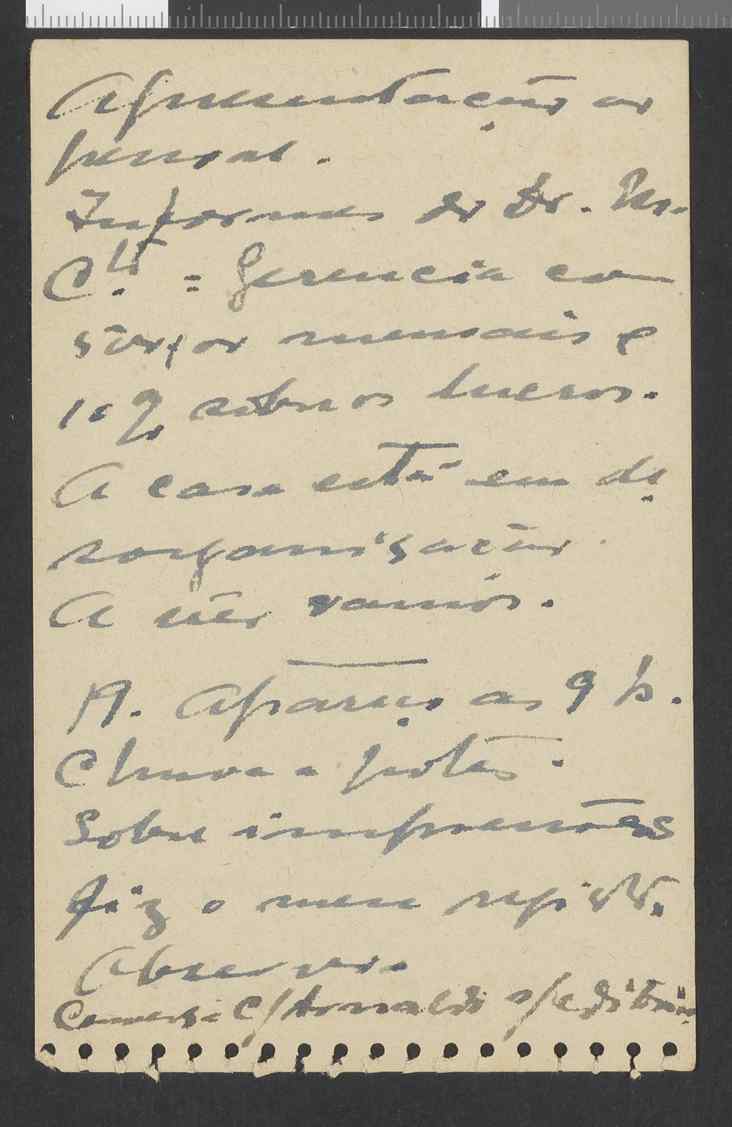 Apresentação ao
pessoal.
Informes do Dr. M.
C. = Gerencia com
mensais e
10% sobre os lucros.
A casa está em de
sorganisação.
A vêr vamos.
19. Apareço as 9 h.
Chuva a potes.
Sobre impressões
fiz o meu
Observo.
Conversa c/ Arnaldo s/